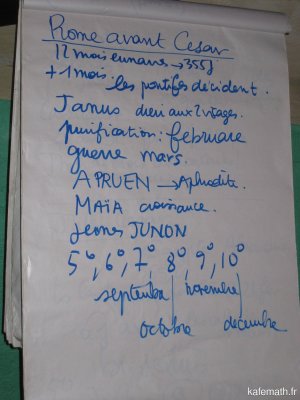 Rome avant Cesar
12 mois lunaires → 355j
+ 1 mois : les pontifes décident.
Janus dieu aux 2 visages.
purification : februare
guerre mars.
APRUEN → Aphrodite.
MAÏA croissance.
jeunes JUNON
5°, 6°, 7°, 8°, 9°, 10°
septembre novembre
octobre décembre
kafemath.fr